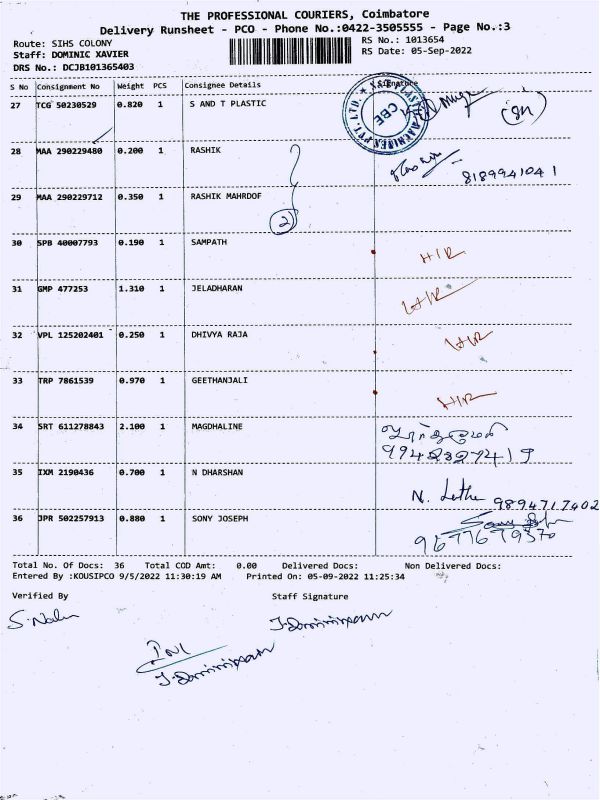 THE PROFESSIONAL COURIERS, Coimbatore
Delivery Runsheet - PCO - Phone No.:0422-3505555 - Page No.:3
Route: SIHS COLONY
RS No.: 1013654
Staff: DOMINIC XAVIER
RS Date: 05-Sep-2022
DRS No.: DCJB101365403
S No Consignment No Weight PCS Consignee Details Signature
27 TCG 50230529 0.820 1 S AND T PLASTIC
28 MAA 290229480 0.200 1 RASHIK
8189941041
29 MAA 290229712 0.350 1 RASHIK MAHRDOF
2
30 SPB 40007793 0.190 1 SAMPATH H/R
31 GMP 477253 1.310 1 JELADHARAN H/R
32 VPL 125202401 0.250 1 DHIVYA RAJA H/R
33 TRP 7861539 0.970 1 GEETHANJALI H/R
34 SRT 611278843 2.100 1 MAGDHALINE
9942327419
35 IXM 2190436 0.700 1 N DHARSHAN
9894717402
36 JPR 502257913 0.880 1 SONY JOSEPH
9677679370
Total No. Of Docs: 36 Total COD Amt: 0.00 Delivered Docs: Non Delivered Docs:
Entered By :KOUSIPCO 9/5/2022 11:30:19 AM Printed On: 05-09-2022 11:25:34
Verified By Staff Signature